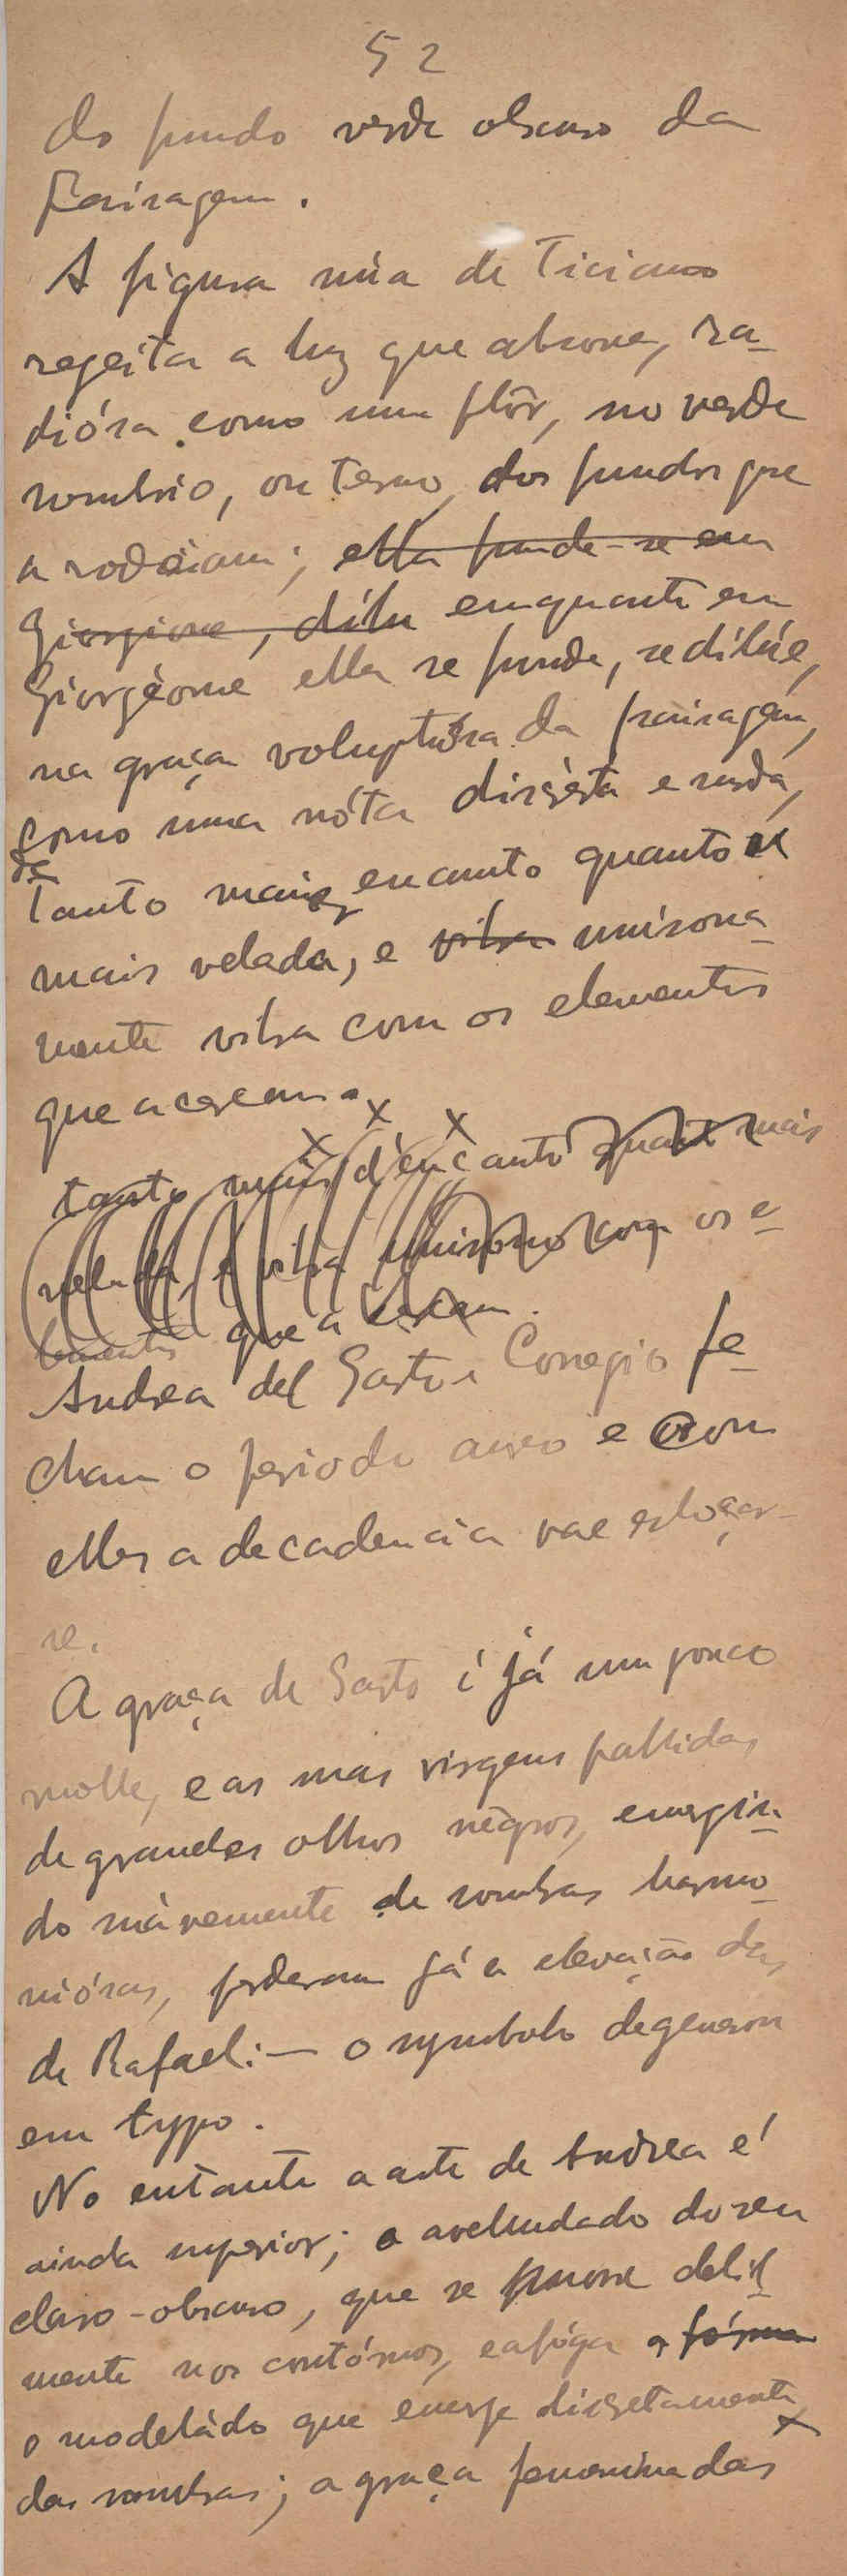 52
do fundo verde obscuro da
Paisagem.
A figura núa de Ticiano
regeita a luz que absorve, ra-
diósa como uma flôr, no verde
sombrio, ou terno, dos fundos que
a rodeiam; ella funde-se em
Giorgione, dilu emquanto em
Giorgione ella se funde, se dilúe,
na graça voluptuósa da paisagem,
como uma nóta discréta e surda,
de
tanto mais encanto quanto é
mais velada, e vibra unisona-
mente vibra com os elementos
que a cercam.
x x x
tanto mais d'encanto quanto mais
velada, e vibra unisono com os e-
lementos que a cercam.
Andrea del Sarto e Corregio fe-
cham o periodo aureo e com
elles a decadencia vae esboçar-
se.
A graça de Sarto é já um pouco
molle, e as suas virgens pallidas
de grandes olhos négros, emergin-
do suávemente de sombras harmo-
niósas, perderam já a elevação das
de Rafael: — o symbolo degenerou
em typo.
No entanto a arte de Andrea é
ainda superior; o avelludado do seu
claro-obscuro, que se move
mente nos contórnos, e afóga a fórma
o modeládo que emerge discretamente
das sombras; a graça femenina das